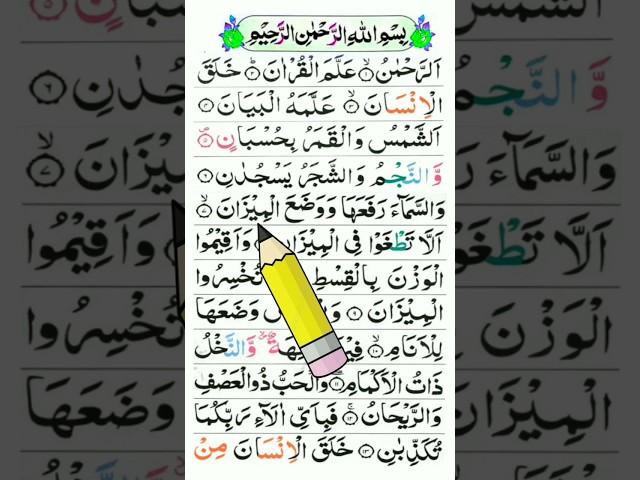 بِسْمِ اللهِ الرَّحْمٰنِ الرَّحِيْمِ
اَلرَّحْمٰنُ ۝۱ عَلَّمَ الْقُرْاٰنَ ۝۲ خَلَقَ
الْاِنْسَانَ ۝۳ عَلَّمَهُ الْبَيَانَ ۝۴
اَلشَّمْسُ وَالْقَمَرُ بِحُسْبَانٍ ۝۵
وَّالنَّجْمُ وَالشَّجَرُ يَسْجُدٰنِ ۝۶
وَالسَّمَآءَ رَفَعَهَا وَوَضَعَ الْمِيْزَانَ ۝۷
اَلَّا تَطْغَوْا فِى الْمِيْزَانِ وَاَقِيْمُوا
الْوَزْنَ بِالْقِسْطِ تُخْسِرُوا
الْمِيْزَانَ ۝۹ وَضَعَهَا
لِلْاَنَامِ ۝۱۰ وَّالنَّخْلُ
ذَاتُ الْاَكْمَامِ ۝۱۱ وَالْحَبُّ ذُوالْعَصْفِ
وَالرَّيْحَانُ ۝۱۲ فَبِاَىِّ اٰلَآءِ رَبِّكُمَا
تُكَذِّبٰنِ ۝۱۳ خَلَقَ الْاِنْسَانَ مِنْ